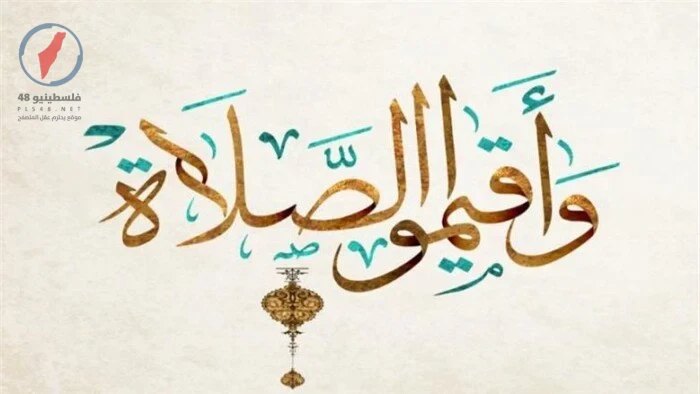 فلسطينيو 48
PLS48.NET
موقع يحترم عقل المتصفح
وَأَقِيمُوا الصَّلَاةَ